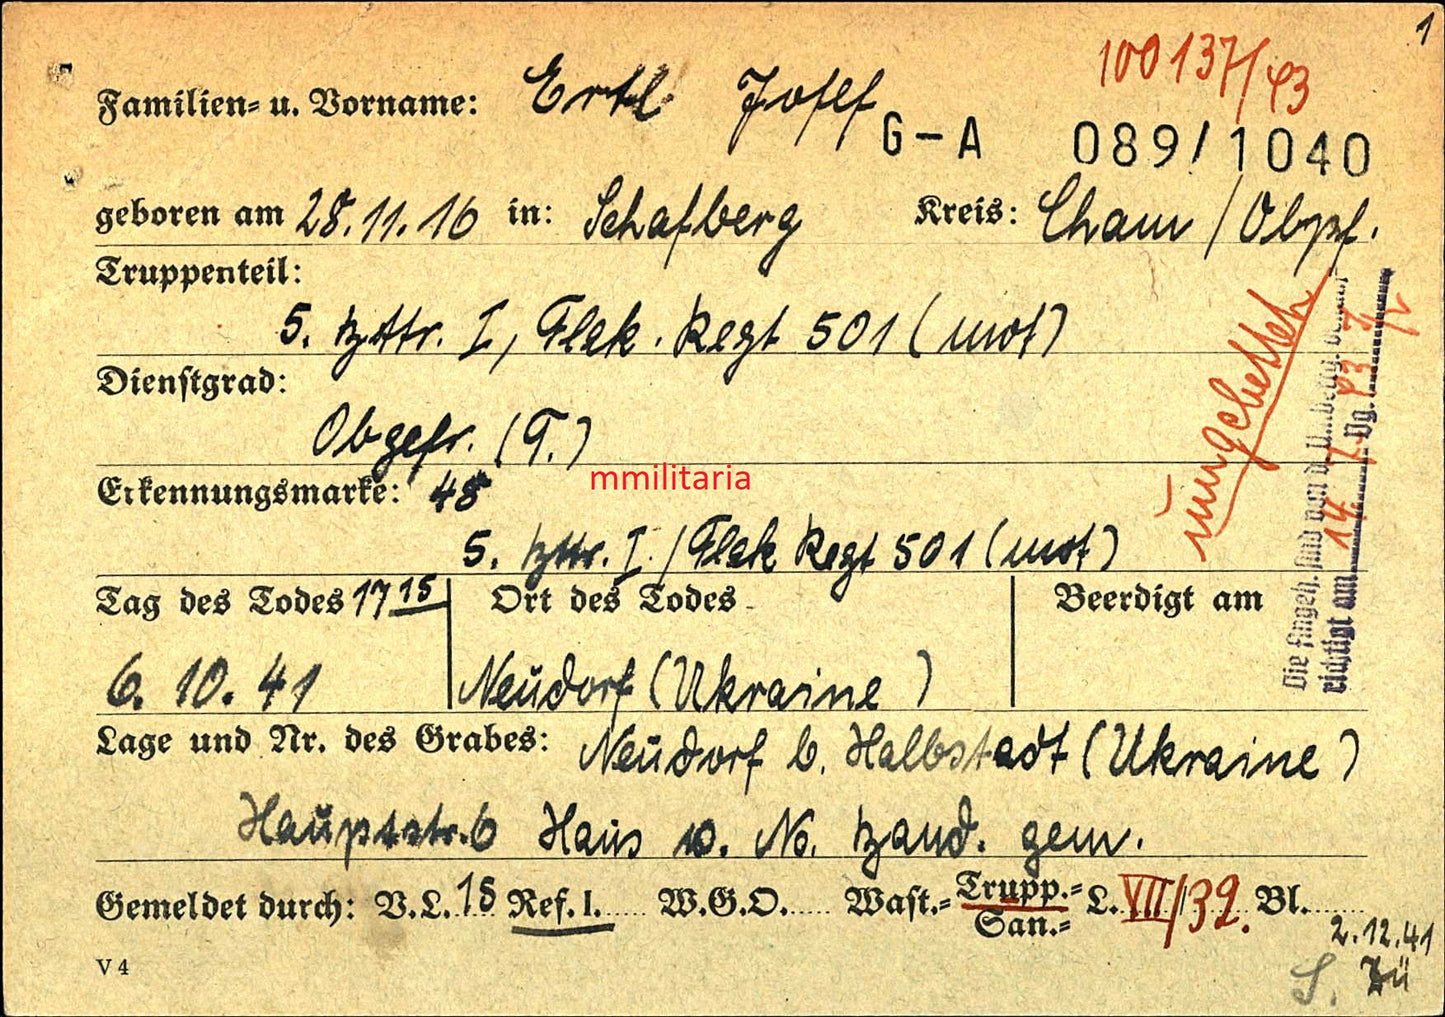 1
100137/43
Familien- u. Vorname: Ertl Josef
G-A 089/1040
geboren am 28.11.16 in: Schafberg Kreis: Cham / Obpf.
Truppenteil:
5. Bttr. I, Flak. Regt 501 (mot)
Dienstgrad:
Obgefr. (T.)
Erkennungsmarke: 48
mmilitaria
5. Bttr. I. / Flak Regt 501 (mot)
Tag des Todes 17 15 Ort des Todes Beerdigt am
6. 10. 41 Neudorf (Ukraine)
Lage und Nr. des Grabes: Neudorf b. Halbstadt (Ukraine)
Hauptstr. 6 Haus
gem.
Gemeldet durch: V.L. 18 Ref. I. W.G.O. Wast.- Trupp.- San.- L. VII/39. Bl.
2.12.41
V 4
umgebettet
Die Angeh. sind
richtigt am